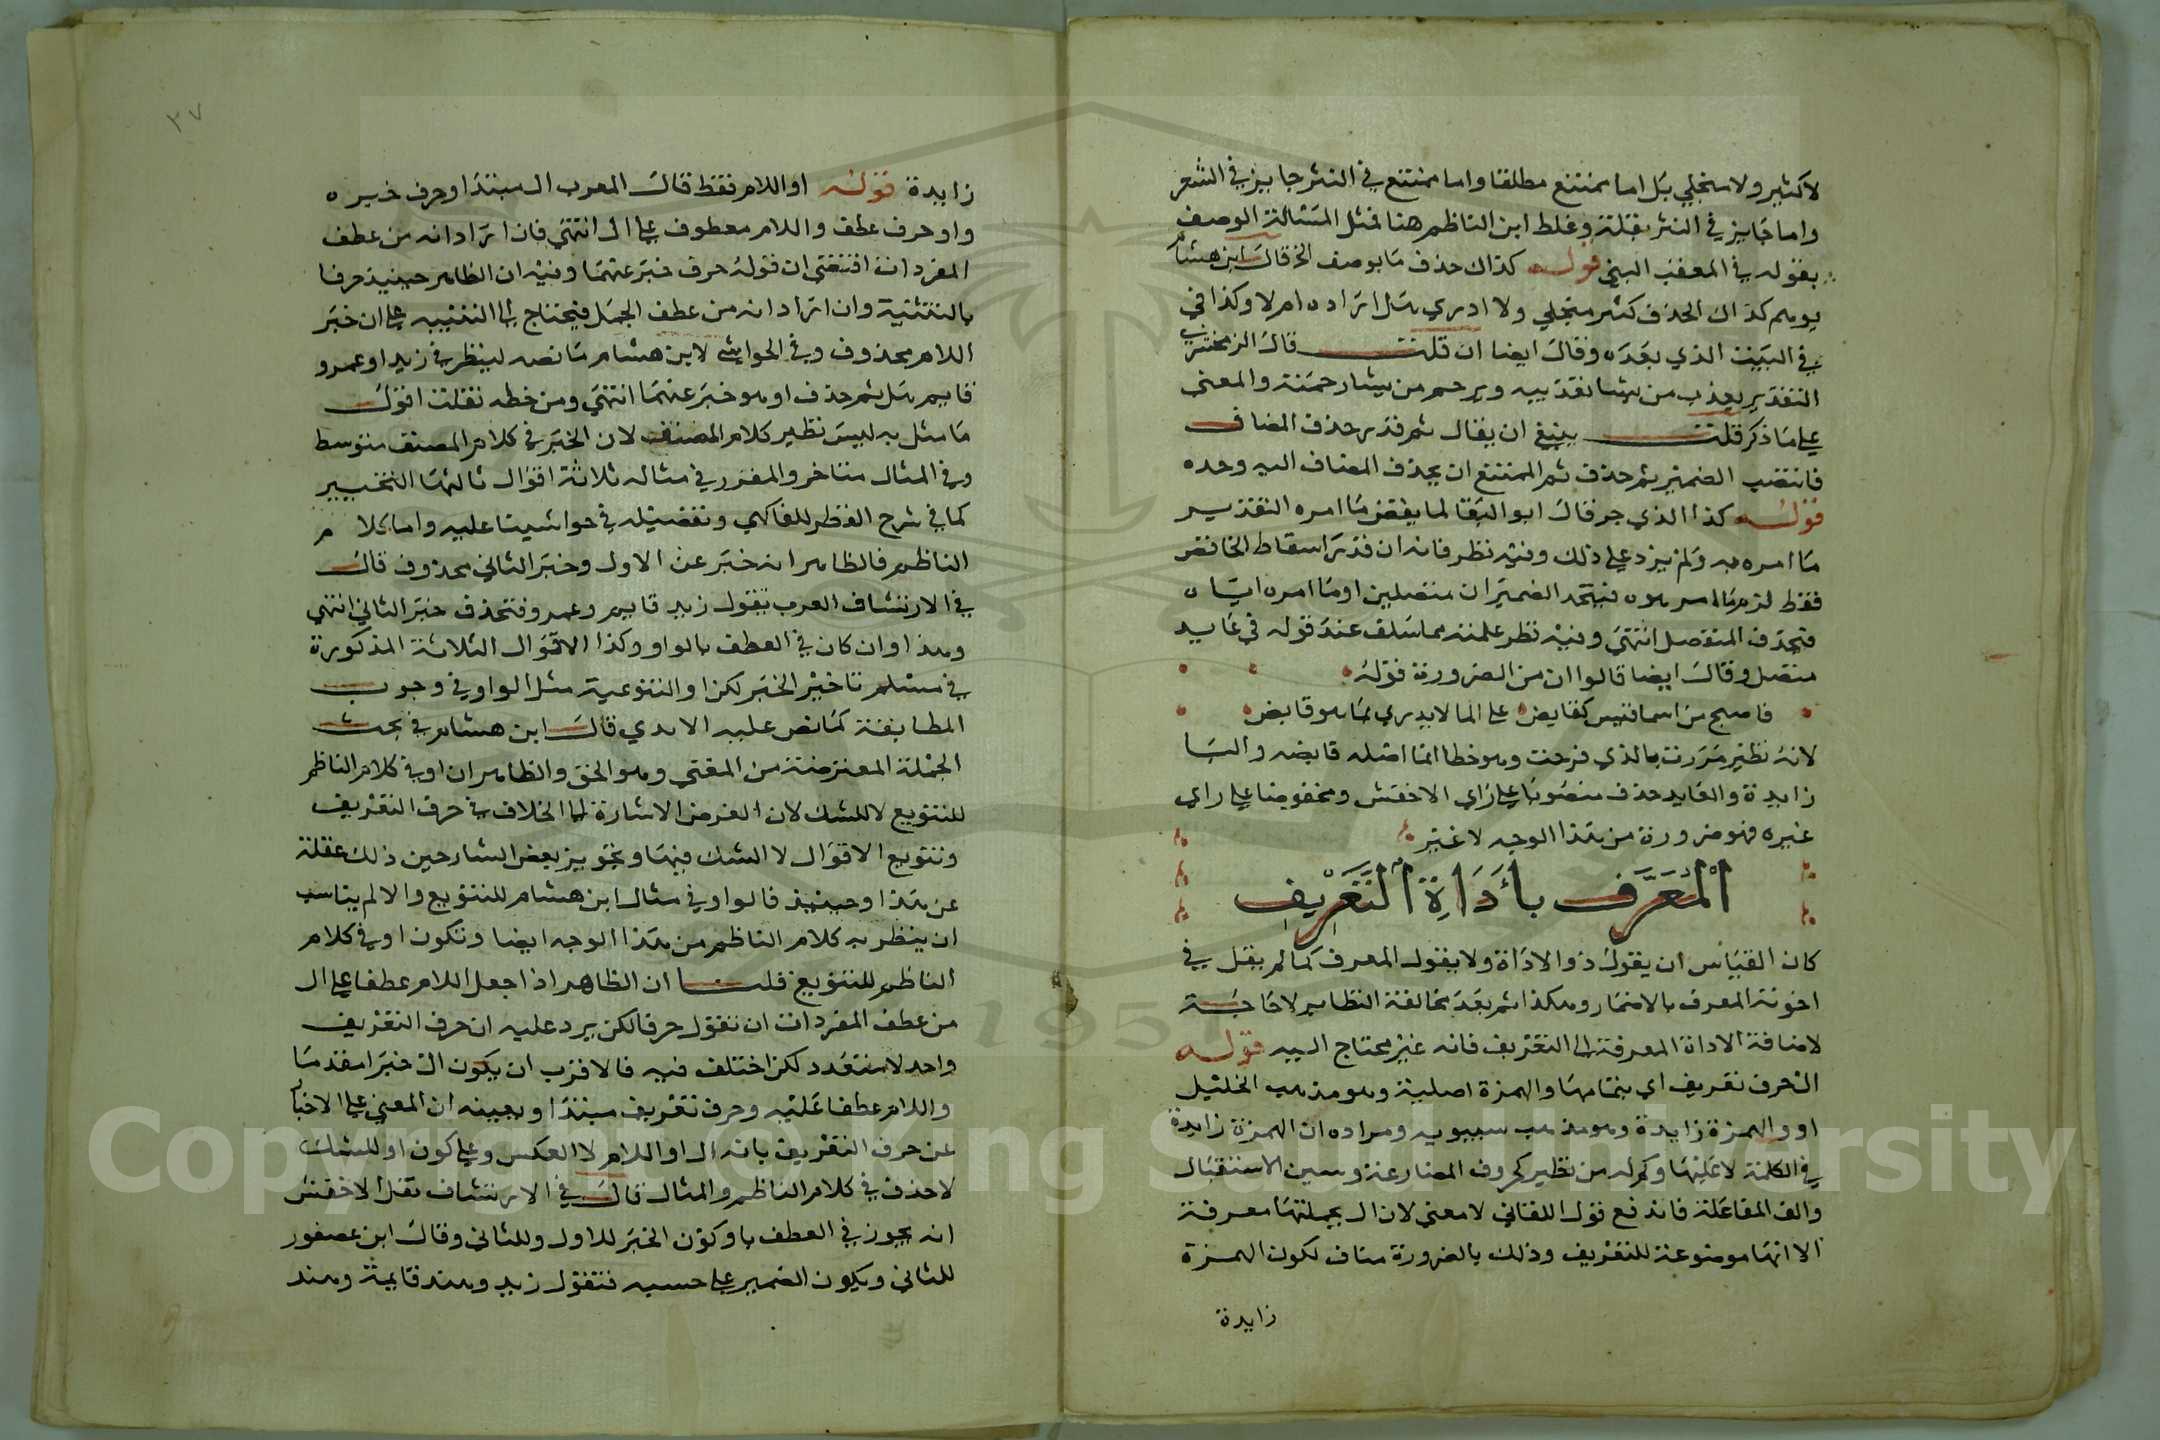 لا كثير ولا منجلي بل اما ممتنع مطلقا واما ممتنع في النثر جايز في الشعر
واما جايز في النثر بقلة وغلط ابن الناظم هنا فمثل المسئالة الوصف
بقوله في المعقب البغي قوله كذاك حذف ما بوصف الخ قال ابن هشام
يوهم كذاك الحذف كثير منجلي ولا ادري هل اراده ام لا وكذا في
في البيت الذي بعده وقال ايضا ان قلت قال الزمخشري
التقدير يعذب من يشا تعذيبه ويرحم من يشا رحمته والمعنى
على ما ذكر قلت ينبغي ان يقال ثم قدر حذف المضاف
فانتصب الضمير ثم حذف ثم الممتنع ان يحذف المضاف اليه وحده
قوله كذا الذي جر قال ابو البقا لما يقض ما امره التقدير
ما امره به ولم يزد على ذلك وفيه نظر فانه ان قدر اسقاط الخافض
فقط لزم ما امرهوه فيتحد الضميران متصلين او ما امره اياه
فحذف المنفصل انتهى وفيه نظر علمته مما سلف عند قوله في عايد
متصل وقال ايضا قالوا ان من الضرورة قوله
فاصبح من اسما قيس كقابض على الما لا يدري بما هو قابض
لانه نظير مررت بالذي فرحت وهو خطا انما اصله قابضه والبا
زايدة والعايد حذف منصوبا على راي الاخفش ومخفوضا على راي
غيره فهو ضرورة من هذا الوجه لا غير
الْمُعَرَّف بأَدَاةِ التَّعْرِيفِ
كان القياس ان يقول ذو الاداة ولا يقول المعرف كما لم يقل في
اخوته المعرف بالاضمار وهكذا ثم بعد مخالفة النظاير لا حاجة
لاضافة الاداة المعرفة الى التعريف فانه غير محتاج اليه قوله
ال حرف تعريف اي بتمامها والهمزة اصلية وهو مذهب الخليل
او والهمزة زايدة وهو مذهب سيبويه ومراده ان الهمزة زايدة
في الكلمة لا عليها وكم له من نظير كحروف المضارعة وسين الاستقبال
والف المفاعلة فاندفع قول اللقاني لا معنى لان ال بجملتها معرفة
الا انها موضوعة للتعريف وذلك بالضرورة مناف لكون الهمزة
زايدة
٢٧
زايدة قوله او اللام فقط قال المعرب ال مبتدا وحرف خبره
واو حرف عطف واللام معطوف على ال انتهى فان اراد انه من عطف
المفردات اقتضى ان قوله حرف خبر عنهما وفيه ان الظاهر حينيذ حرفا
بالتثنية وان اراد انه من عطف الجمل فيحتاج الى التنبيه على ان خبر
اللام محذوف وفي الحواشي لابن هشام ما نصه لينظر في زيد او عمرو
قايم هل ثم حذف او هو خبر عنهما انتهى ومن خطه نقلت اقول
ما مثل به ليس نظير كلام المصنف لان الخبر في كلام المصنف متوسط
وفي المثال متاخر والمقرر في مثاله ثلاثة اقوال ثالثها التخيير
كما في شرح القطر للفاكهي وتفصيله في حواشينا عليه واما كلام
الناظم فالظاهر انه خبر عن الاول وخبر الثاني محذوف قال
في الارتشاف العرب تقول زيد قايم وعمرو فتحذف خبر الثاني انتهى
وهذا وان كان في العطف بالواو وكذا الاقوال الثلاثة المذكورة
في مسئلة تاخير الخبر لكن او التنوعية مثل الواو في وجوب
المطابقة كما نص عليه الابدي قال ابن هشام في بحث
الجملة المعترضة من المغني وهو الحق والظاهر ان او في كلام الناظم
للتنويع لا للشك لان الغرض الاشارة لما الخلاف في حرف التعريف
وتنويع الاقوال لا الشك فيها وتجويز بعض الشارحين ذلك غفلة
عن هذا وحينيذ فالواو في مثال ابن هشام للتنويع والا لم يناسب
ان ينظر به كلام الناظم من هذا الوجه ايضا وتكون او في كلام
الناظم للتنويع قلنا ان الظاهر اذا جعل اللام عطفا على ال
من عطف المفردات ان تقول حرفا لكن يرد عليه ان حرف التعريف
واحد لا متعدد لكن اختلف فيه فالاقرب ان يكون ال خبرا مقدما
واللام عطفا عليه وحرف تعريف مبتدا ويعينه ان المعنى على الاخبار
عن حرف التعريف بانه ال او اللام لا العكس وعلى كون او للشك
لا حذف في كلام الناظم والمثال قال في الارتشاف نقل الاخفش
انه يجوز في العطف باو كون الخبر للاول وللثاني وقال ابن عصفور
للثاني ويكون الضمير على حسبه فتقول زيد وهند قايمة وهند
Copyright © King Saud University
1957